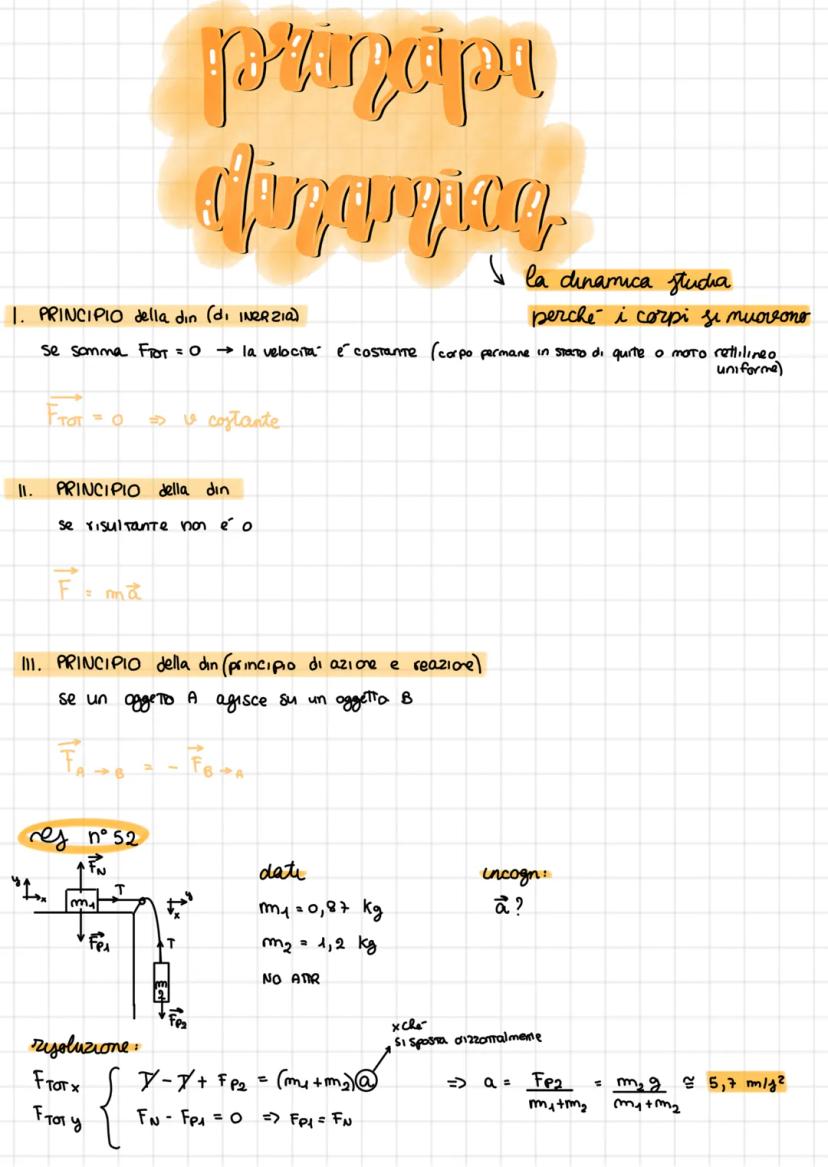 principi
dinamica
la dinamica studia
perché i corpi si muovono
I. PRINCIPIO della din (di INERZIA)
se somma FTOT = 0 → la velocità é costante (corpo permane in stato di quite o moto rettilineo
uniforme)
F⃗TOT = 0 ⇒ v costante
II. PRINCIPIO della din
se risultante non é 0
F⃗ = ma⃗
III. PRINCIPIO della din (principio di azione e reazione)
se un oggetto A agisce su un oggetto B
F⃗A→B = - F⃗B→A
es n° 52
F⃗N
y
x
m1
T
y
x
F⃗P1
T
m2
F⃗P2
dati
m1 = 0,87 kg
m2 = 1,2 kg
NO ATTR
incogn:
a⃗?
risoluzione:
xché
si sposta orizzontalmente
FTOT x { T - T + FP2 = (m1+m2)a ⇒ a = FP2/(m1+m2) = m2 g/(m1+m2) ≅ 5,7 m/s²
FTOT y { FN - FP1 = 0 ⇒ FP1 = FN